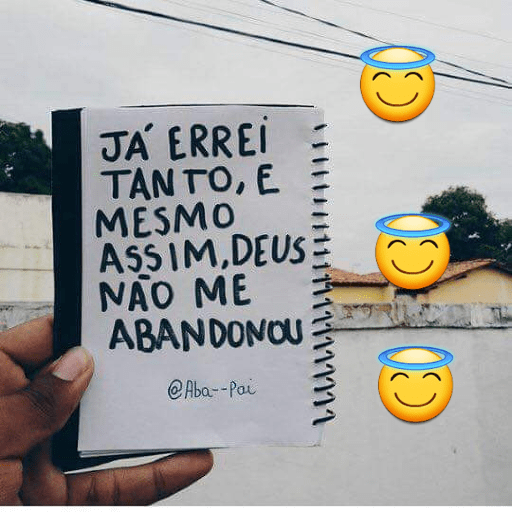 JÁ ERREI
TANTO, E
MESMO
ASSIM, DEUS
NÃO ME
ABANDONOU
@Aba--Pai